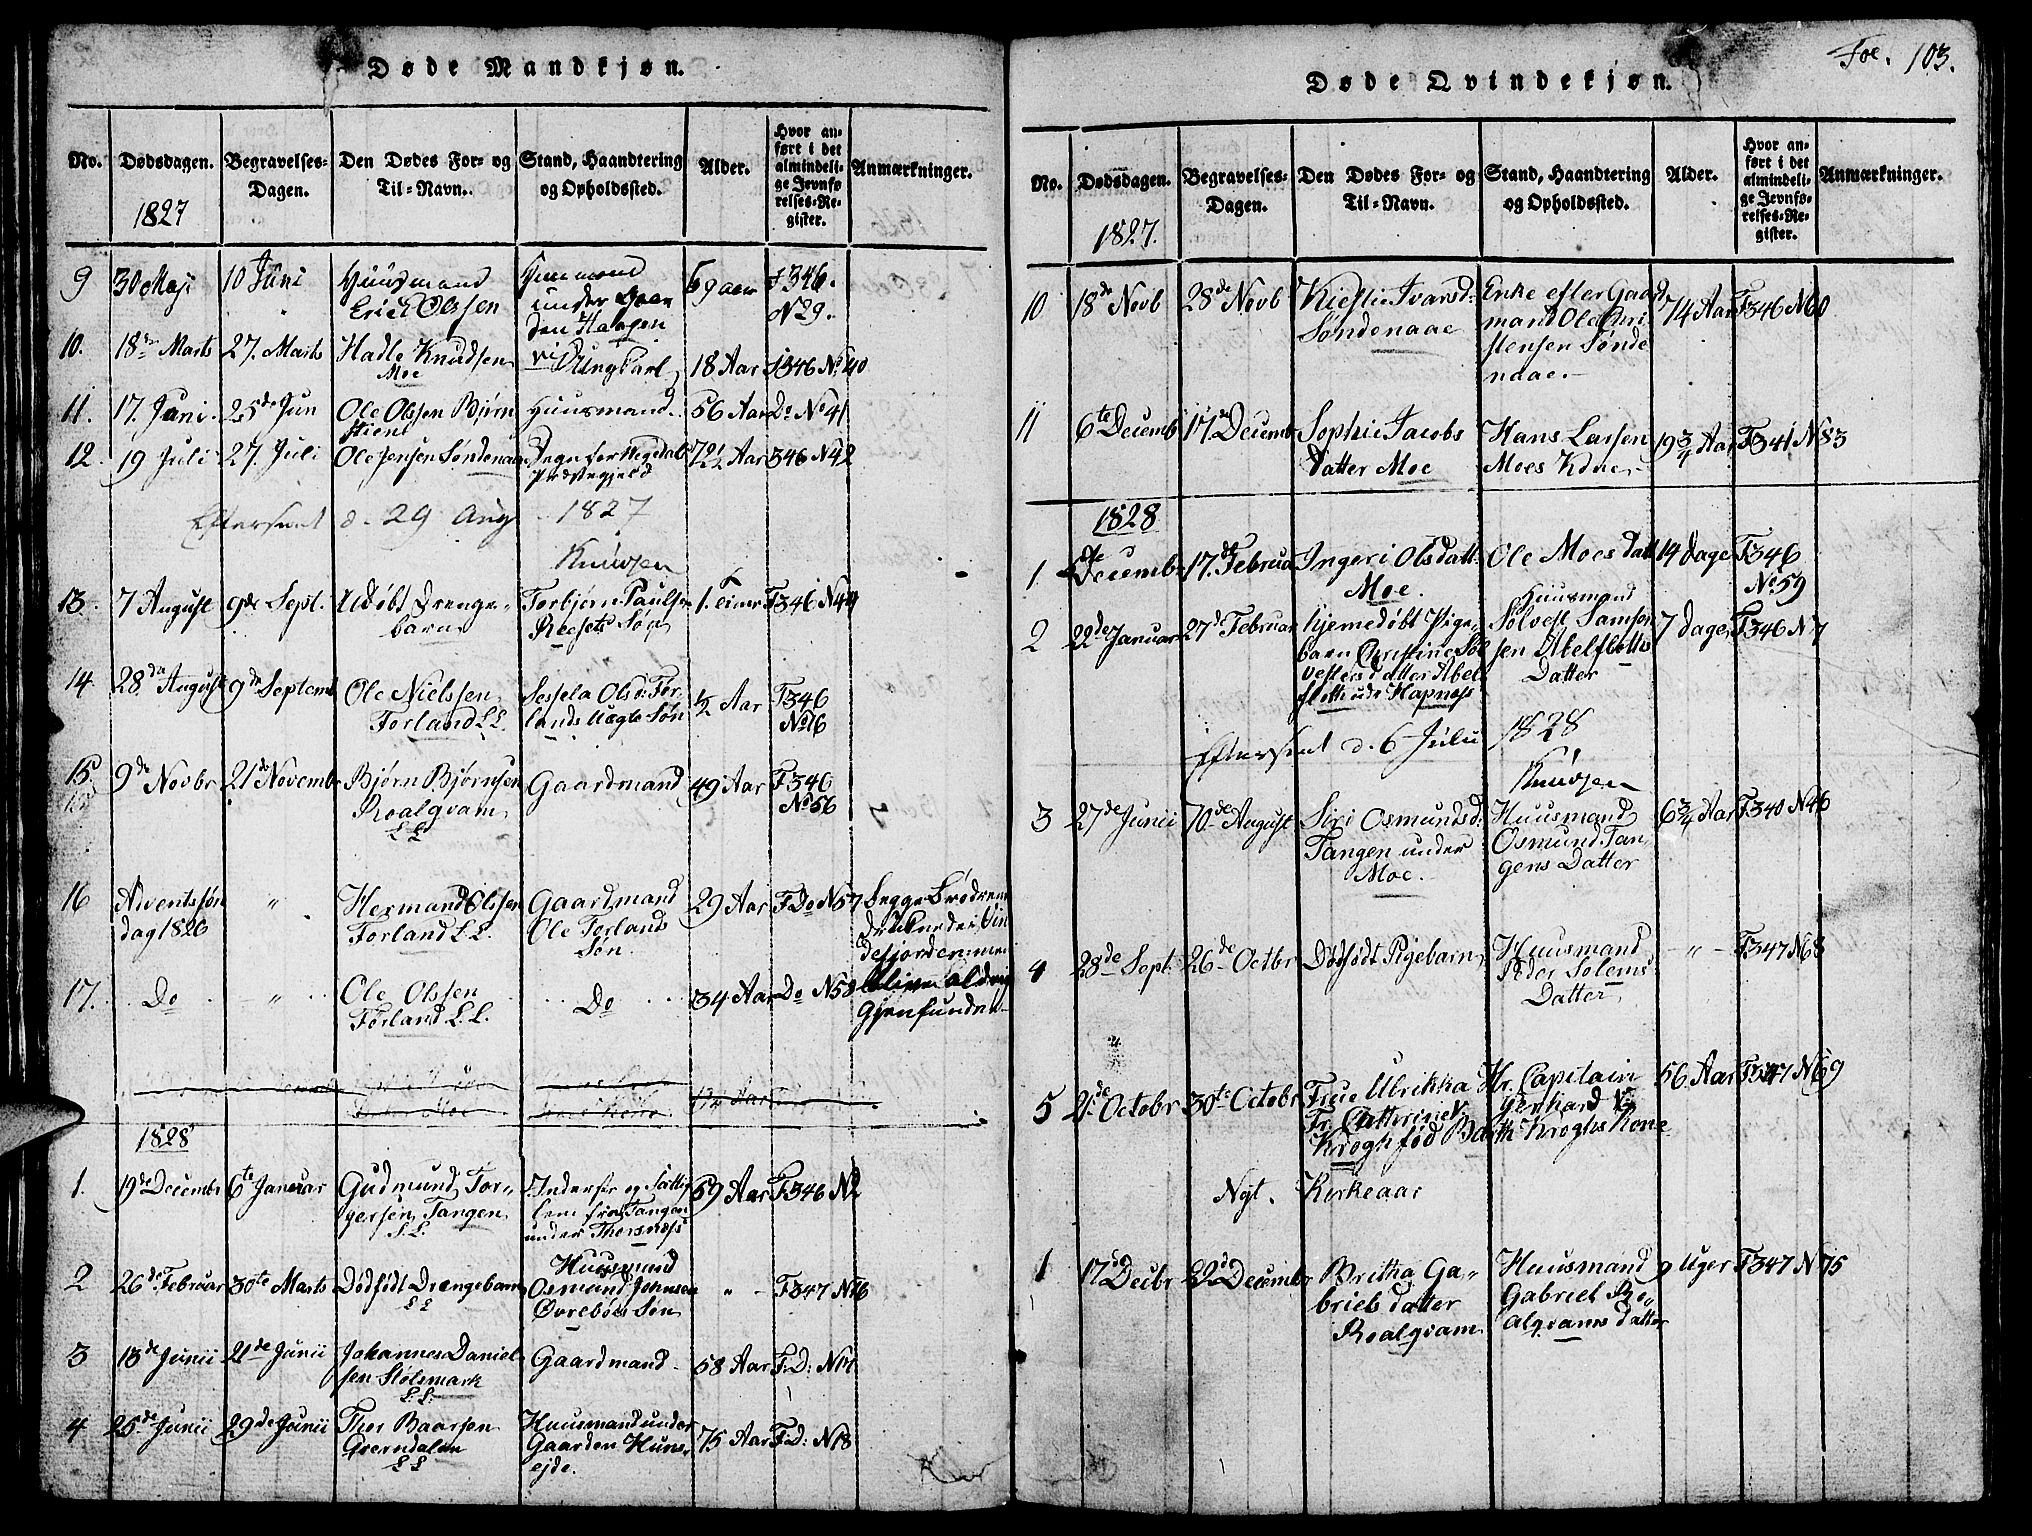 Døde Mandkjøn.
No. Dødsdagen. Begravelses-Dagen. Den Dødes For- og Til-Navn. Stand, Haandtering og Opholdssted. Alder. Hvor anført i det almindelige Jevnførelses-Register. Anmærkninger.
1827
9 30 Maji 10 Juni Huusmand
Erich Olssen
under
den Haagen
69 aar
346.
N29.
10. 18de Marts 27. Marts Hadle Knudsen
Moe
Ungkarl 18 Aar 346 No 40
11. 17. Juni. 25de Jun Ole Olssen Bjørn
stient
Huusmand 56 Aar Do No 41
12. 19 Juli 27. Juli Ole Jensen Søndenaae
Degn for
Præstegjeld
72½ Aar 346 N42
Efterseet d. 29 Aug 1827
Knudsen
13. 7 August 9de Sept. Udøbt Drenge-
barn
Torbjørn Paulsen
Søn
1. F346 N44
14. 28de August 9de Septemb Ole Nielssen
Forland L.L.
Sessela Olsd: For-
lands Uægte Søn
½ Aar F346
No16
15 9de Novbr 21de Novembr Bjørn Bjørnsen
Roalqvam
L L
Gaardmand 49 Aar F346
No56
16 Adventssøn
dag 1826
" Hermand Olssen
Forland L.L.
Gaardmand
Ole Forlands
Søn.
29 Aar F Do N57 Begge Brødrene
drucknede i Vin
defjorden men
bleve aldrig
Gjenfunden
17. Do " Ole Olssen
Forland L.L.
Do 34 Aar Do N58
1828
1. 19de Decembr 6te Januar Gudmund Tor-
gersen Tangen
L.L.
Inderst og
lem fra Tangen
under Thorsnæss
69 Aar F346 N2
2 26de Februar 30te Marts Dødfødt Drengebarn
L L
Huusmand
Osmund Johnsen
Øvrebøes Søn
" F347 N16
3 13de Junii 21de Junii Johannes Daniel-
sen Stølsmark
L.L.
Gaardmand 58 Aar F:D: N17
4 25de Junii 29de Junii Thor Baarsen
Grerndalen
L L
Huusmand under
Gaarden Huns
ejde.
75 Aar F:D: N18
Døde Qvindekjøn.
Foe. 103.
No. Dødsdagen. Begravelses-Dagen. Den Dødes For- og Til-Navn. Stand, Haandtering og Opholdssted. Alder. Hvor anført i det almindelige Jevnførelses-Register. Anmærkninger.
1827.
10 18de Novb 28de Novb Kiestie Ivarsd:
Søndenaae
Enke efter Gaard
mand Ole Chri
stensen Sønde
naae.
74 Aar F346 N60
11 6te Decemb 17de Decemb Sophie Jacobs
Datter Moe
Hans Larsen
Moes Kone
19¾ Aar F341 N83
1828
1. Decemb 17. Februar Ingeri Olsdatt
Moe.
Ole Moes Datt 14 dage F346
No59
2 22de Januar 27d Februar Hjemedøbt Pige-
barn Christine Søl
vesters datter Abel
slette ude Hapness
Huusmand
Sølvest Samson
sen Abelslettes
Datter
7 dage F346 N7
Efterseet d. 6 Julii 1828
Knudsen
3 27de Junii 10de August Siri Osmundsd:
Tangen under
Moe.
Huusmand
Osmund Tan
gens Datter
6¾ Aar F340 N46
4 28de Sept. 26de Octbr Dødfødt Pigebarn Huusmand
Peder Solems
Datter
" F347 N68
5 21de Octobr 30te Octobr Frue Ulrikka
Fr. Cathrine v.
Krogh fød Barth
Hr. Capitain
Gerhard v.
Kroghs Kone
56 Aar F347 N69
Nyt. Kirkeaar
1 17d Decbr 29d Decembr Britha Ga-
briels datter
Roalqvam
Huusmand
Gabriel Ro-
alqvams datter
9 Uger F347 N75